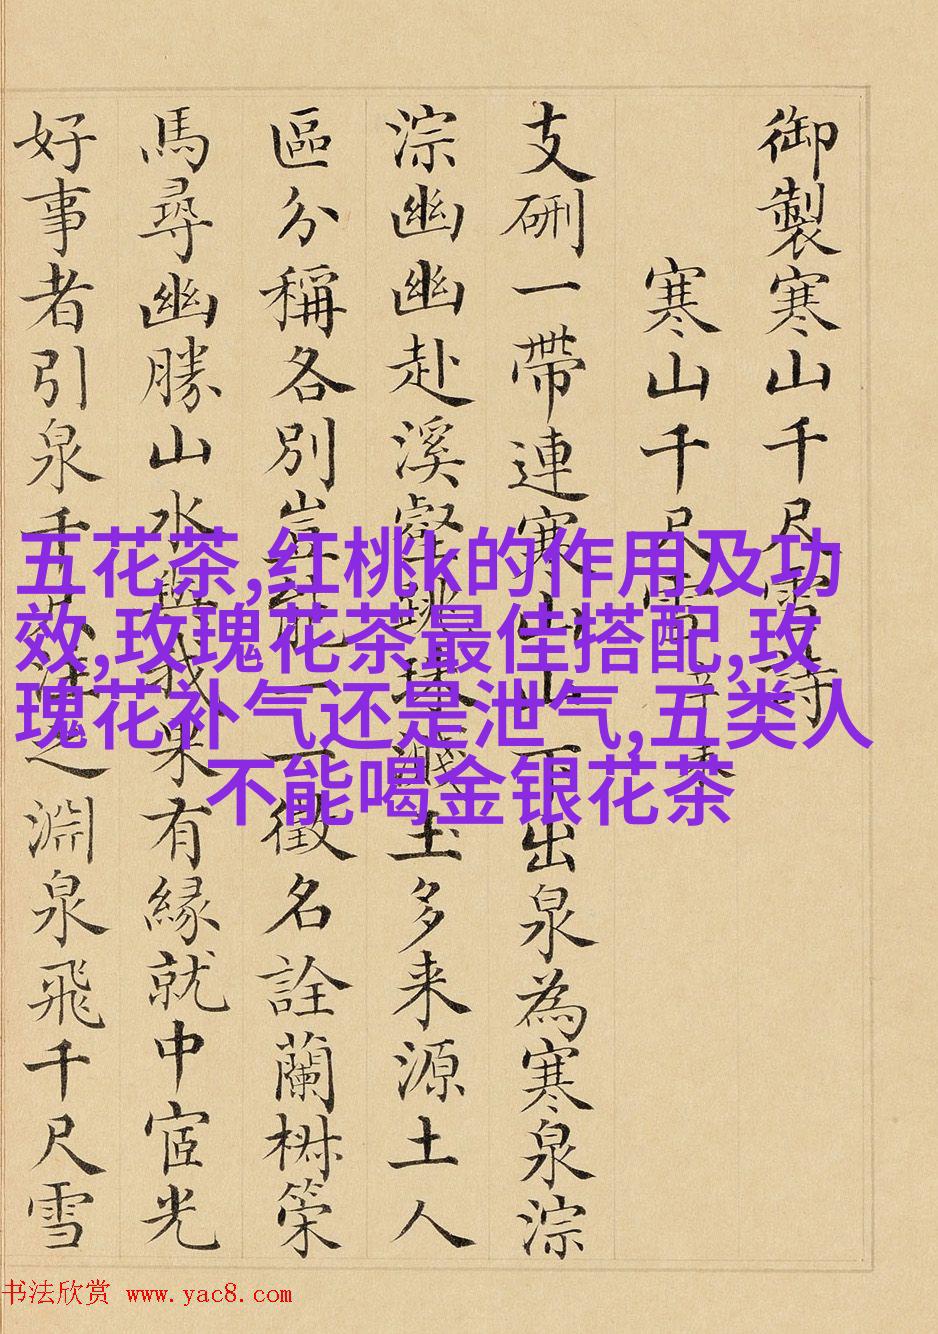 御製寒山千尺雪詩
寒山千尺雪
支硎一帶連寒山山下出泉為寒泉淙
淙幽幽赴溪壑跳珠濺玉多来源土人
區分稱各別岩一一徵名詮蘭樹策
馬尋幽勝山水與我果有緣就中宦光
好事者引泉千尺注之淵泉飛千尺雪
五花茶,红桃k的作用及功
效,玫瑰花茶最佳搭配,玫
瑰花补气还是泄气,五类人
不能喝金银花茶
书法欣赏 www.yac8.com